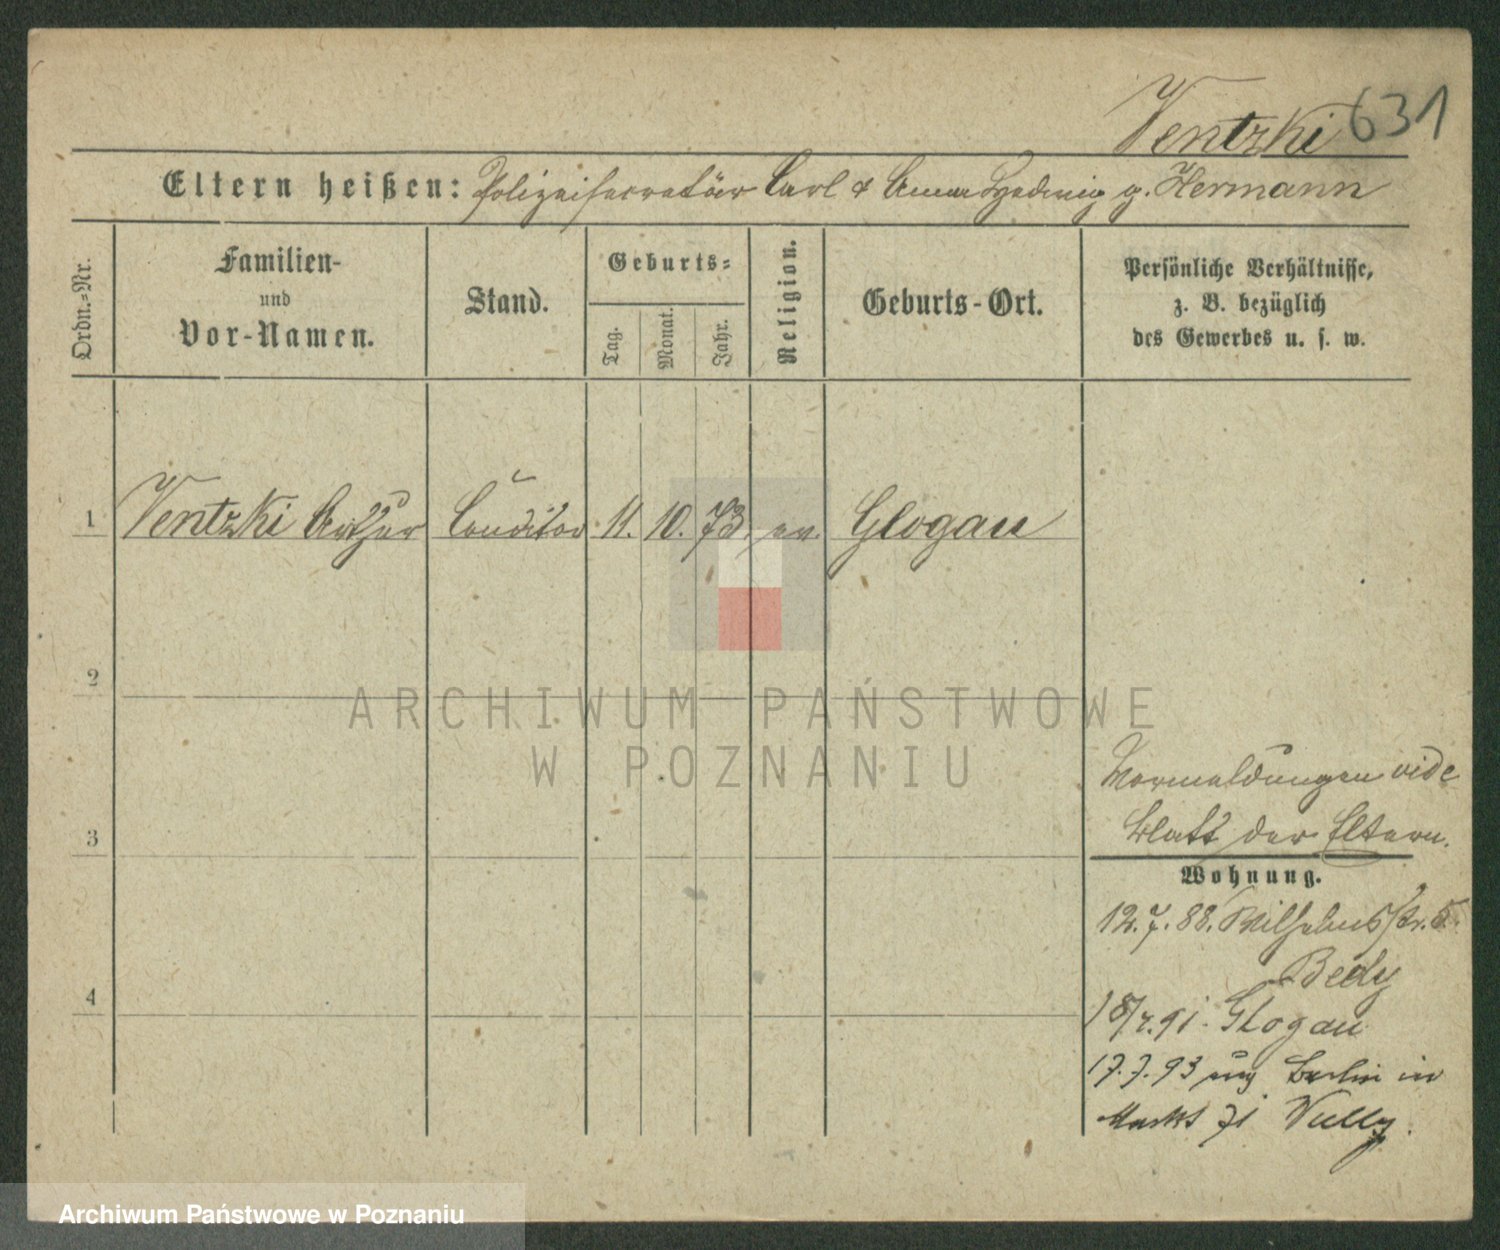 Ventzki 631
Eltern heißen: Polizeisecretär Carl & Anna Hedwig g. Hermann
Ordn.=Nr.
Familien-
und
Vor-Namen.
Stand.
Geburts=
Tag.
Monat.
Jahr.
Religion.
Geburts-Ort.
Persönliche Verhältnisse,
z. B. bezüglich
des Gewerbes u. s. w.
1 Ventzki Arthur Conditor 11. 10. 73. ev. Glogau
2
3
4
ARCHIWUM PAŃSTWOWE
W POZNANIU
Vormeldungen vide
Blatt der Eltern.
Wohnung.
12.7.88. Wilhelmsstr. 5.
Bedy
18/7.91. Glogau
17.7.93 Berlin in
Markt 71
Archiwum Państwowe w Poznaniu